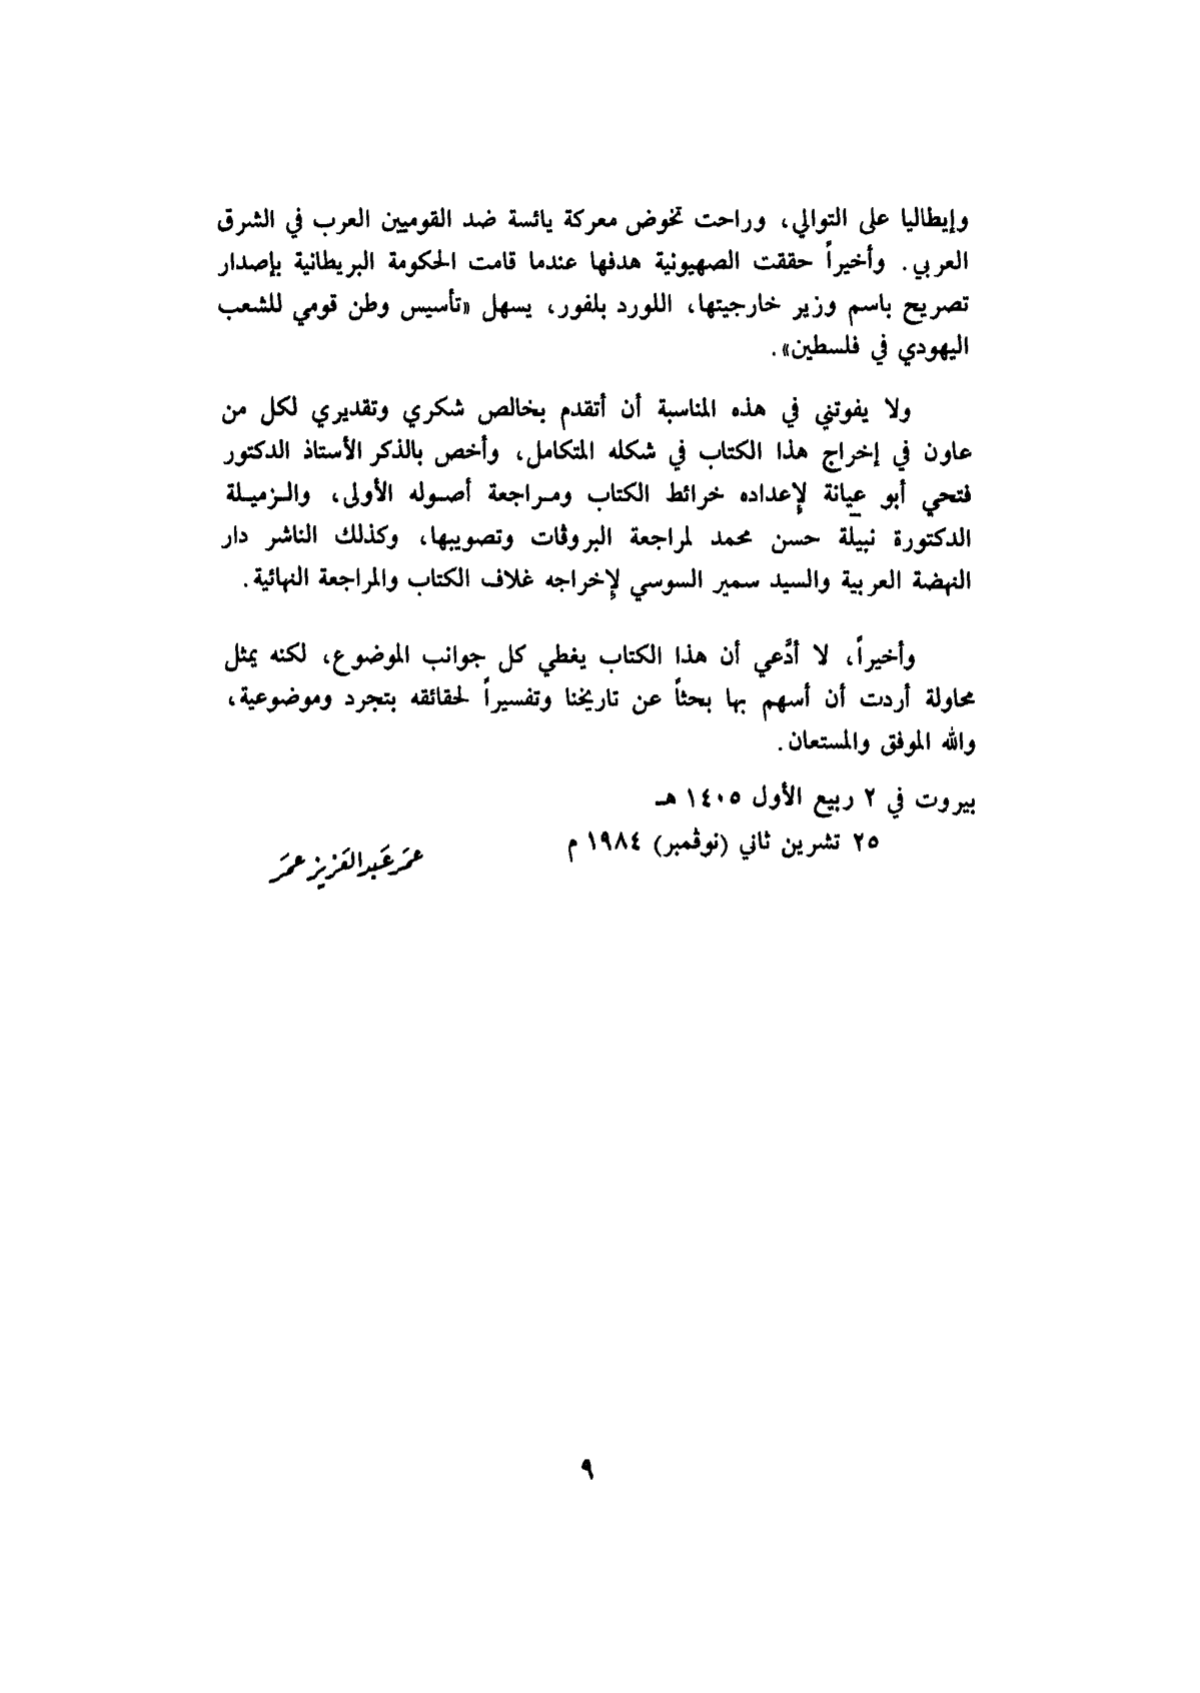 وإيطاليا على التوالي، وراحت تخوض معركة يائسة ضد القوميين العرب في الشرق
العربي. وأخيراً حققت الصهيونية هدفها عندما قامت الحكومة البريطانية بإصدار
تصريح باسم وزير خارجيتها، اللورد بلفور، يسهل «تأسيس وطن قومي للشعب
اليهودي في فلسطين».
ولا يفوتني في هذه المناسبة أن أتقدم بخالص شكري وتقديري لكل من
عاون في إخراج هذا الكتاب في شكله المتكامل، وأخص بالذكر الأستاذ الدكتور
فتحي أبو عيانة لإعداده خرائط الكتاب ومراجعة أصوله الأولى، والزميلة
الدكتورة نبيلة حسن محمد لمراجعة البروڤات وتصويبها، وكذلك الناشر دار
النهضة العربية والسيد سمير السوسي لإخراجه غلاف الكتاب والمراجعة النهائية.
وأخيراً، لا أدَّعي أن هذا الكتاب يغطي كل جوانب الموضوع، لكنه يمثل
محاولة أردت أن أسهم بها بحثاً عن تاريخنا وتفسيراً لحقائقه بتجرد وموضوعية،
والله الموفق والمستعان.
بيروت في ٢ ربيع الأول ١٤٠٥ هـ
٢٥ تشرين ثاني (نوڤمبر) ١٩٨٤ م
عمَر عَبد العَزيز عمَر
٩